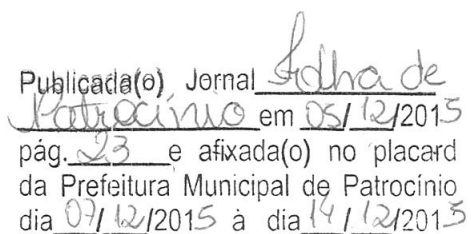 Publicada(o) Jornal Folha de
Patrocínio em 05/12/2015
pág. 23 e afixada(o) no placard
da Prefeitura Municipal de Patrocínio
dia 07/12/2015 à dia 14/12/2015